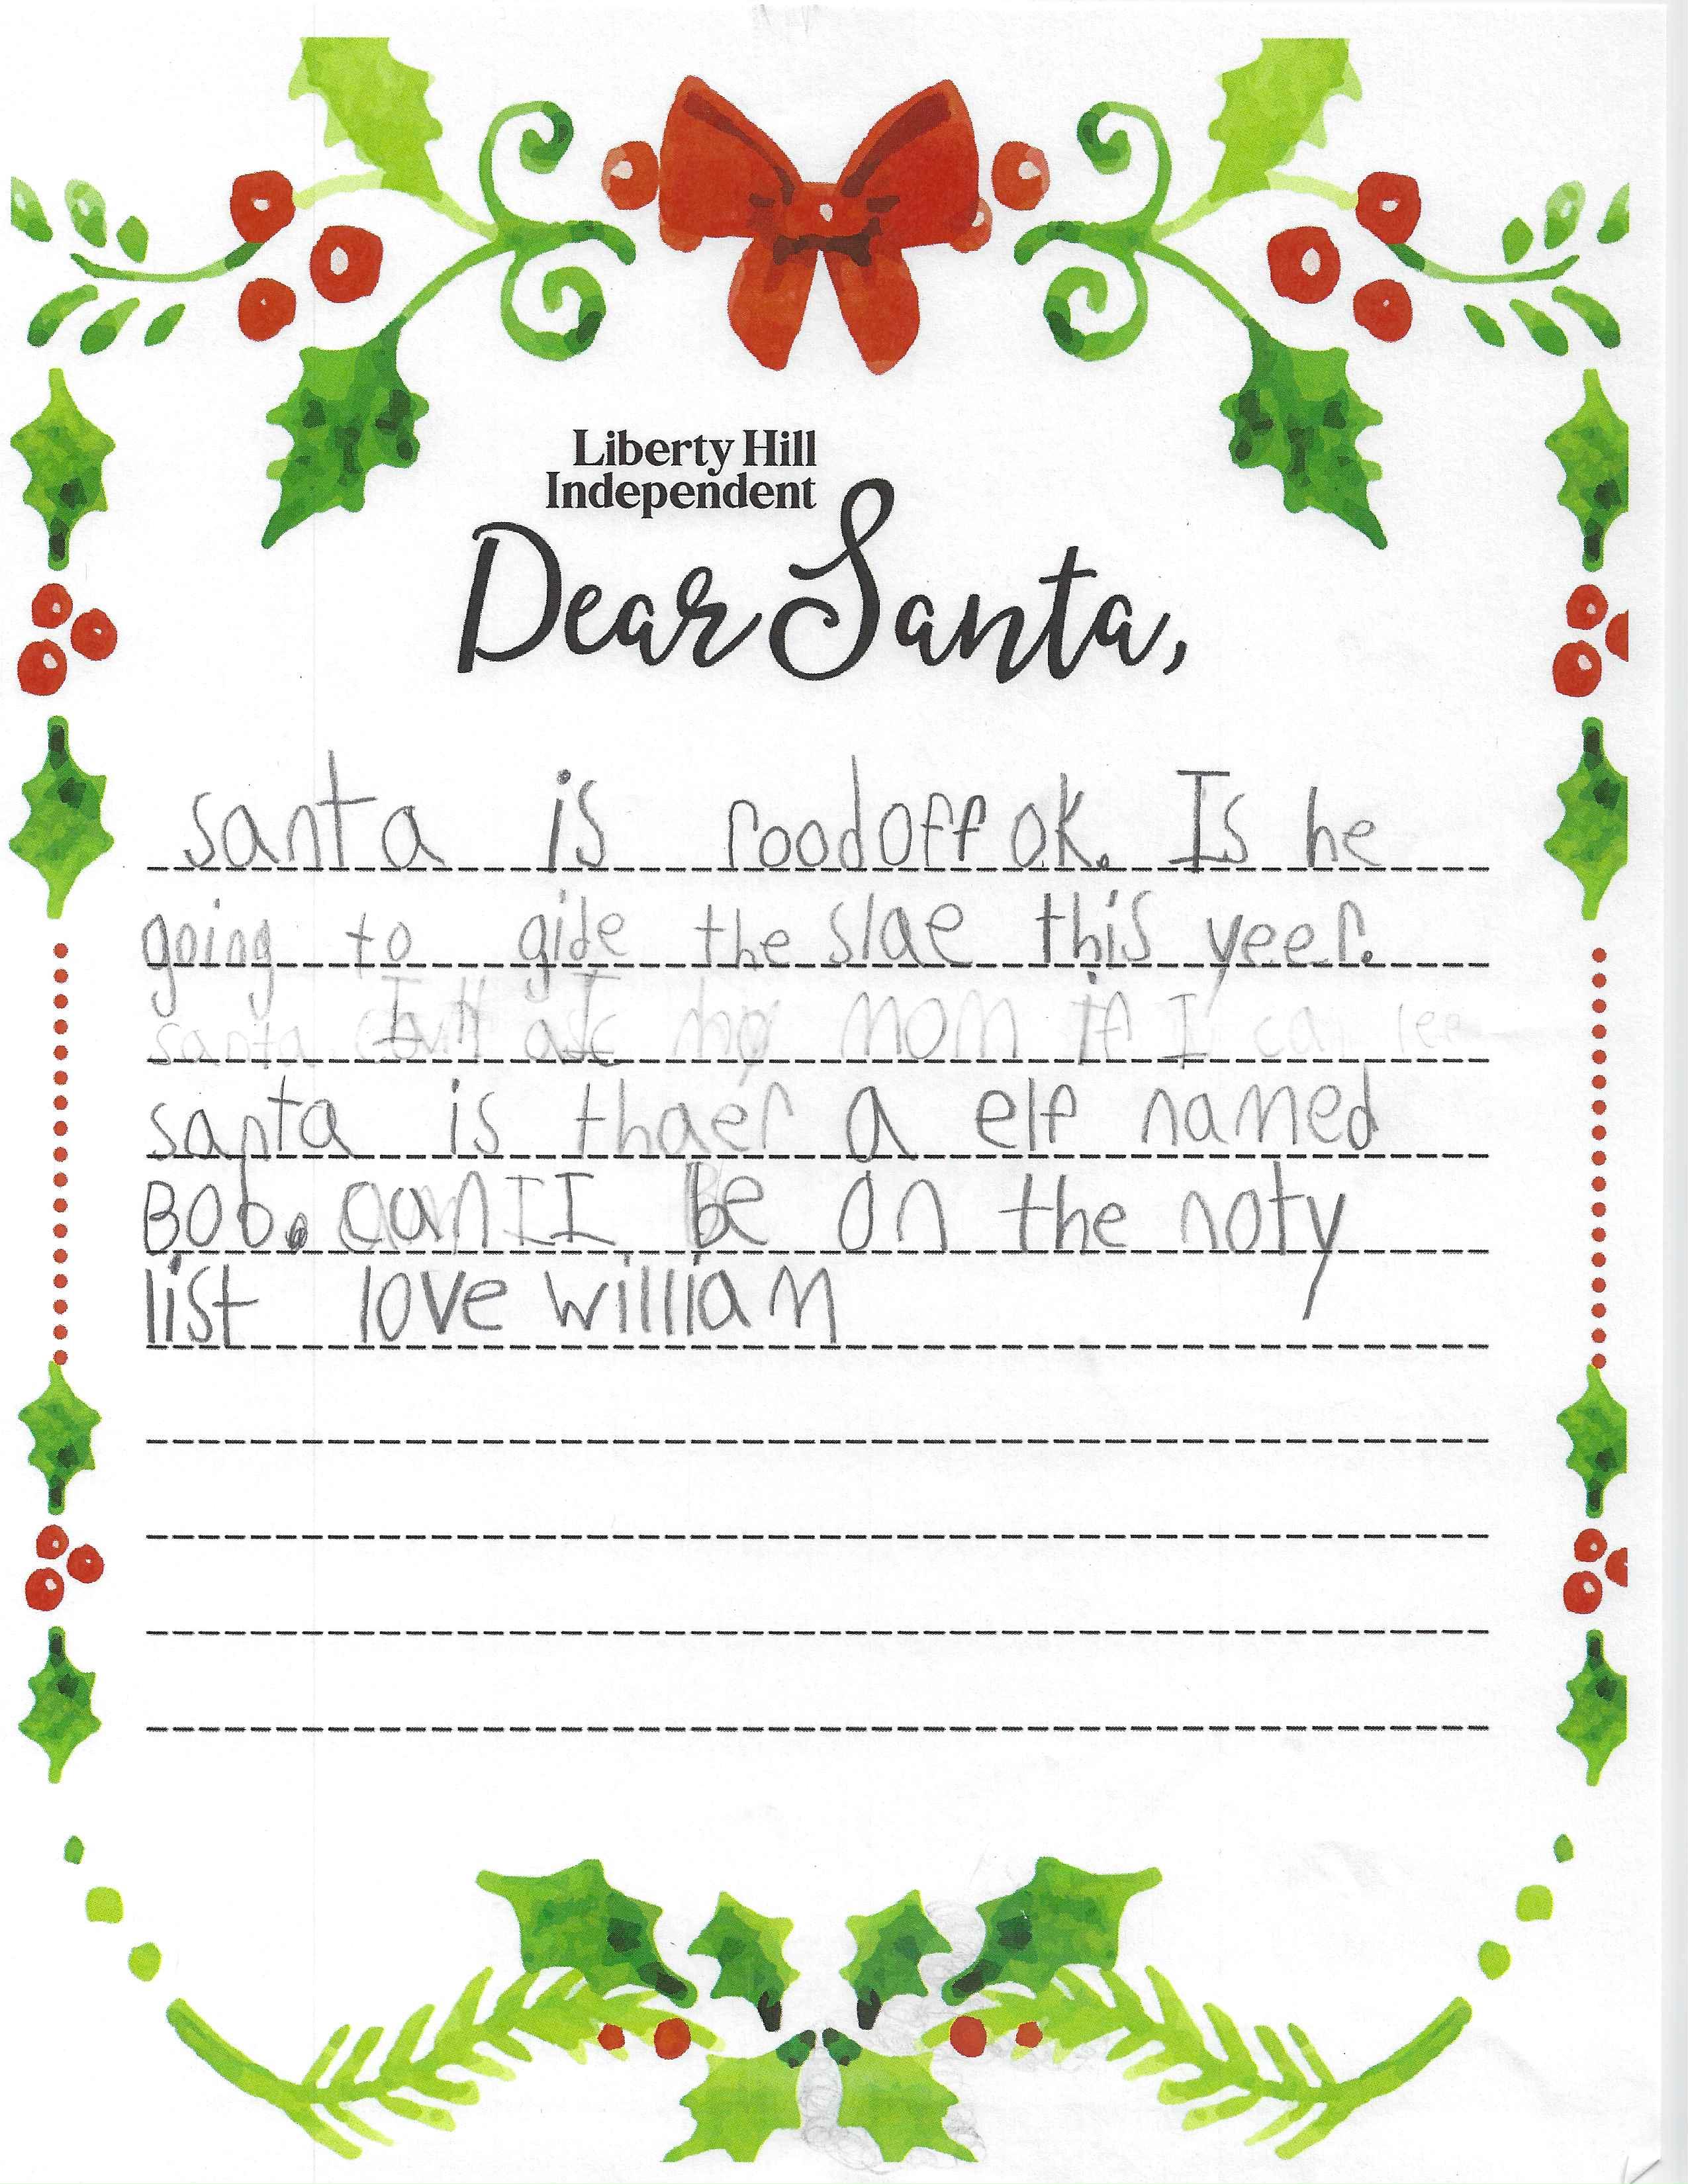 Liberty Hill
Independent
Dear Santa,
santa is roodoff ok. Is he
going to gide the slae this yeer.
santa I ask my mom if I ca
santa is thaer a elf named
Bob. can I I be on the noty
list love william